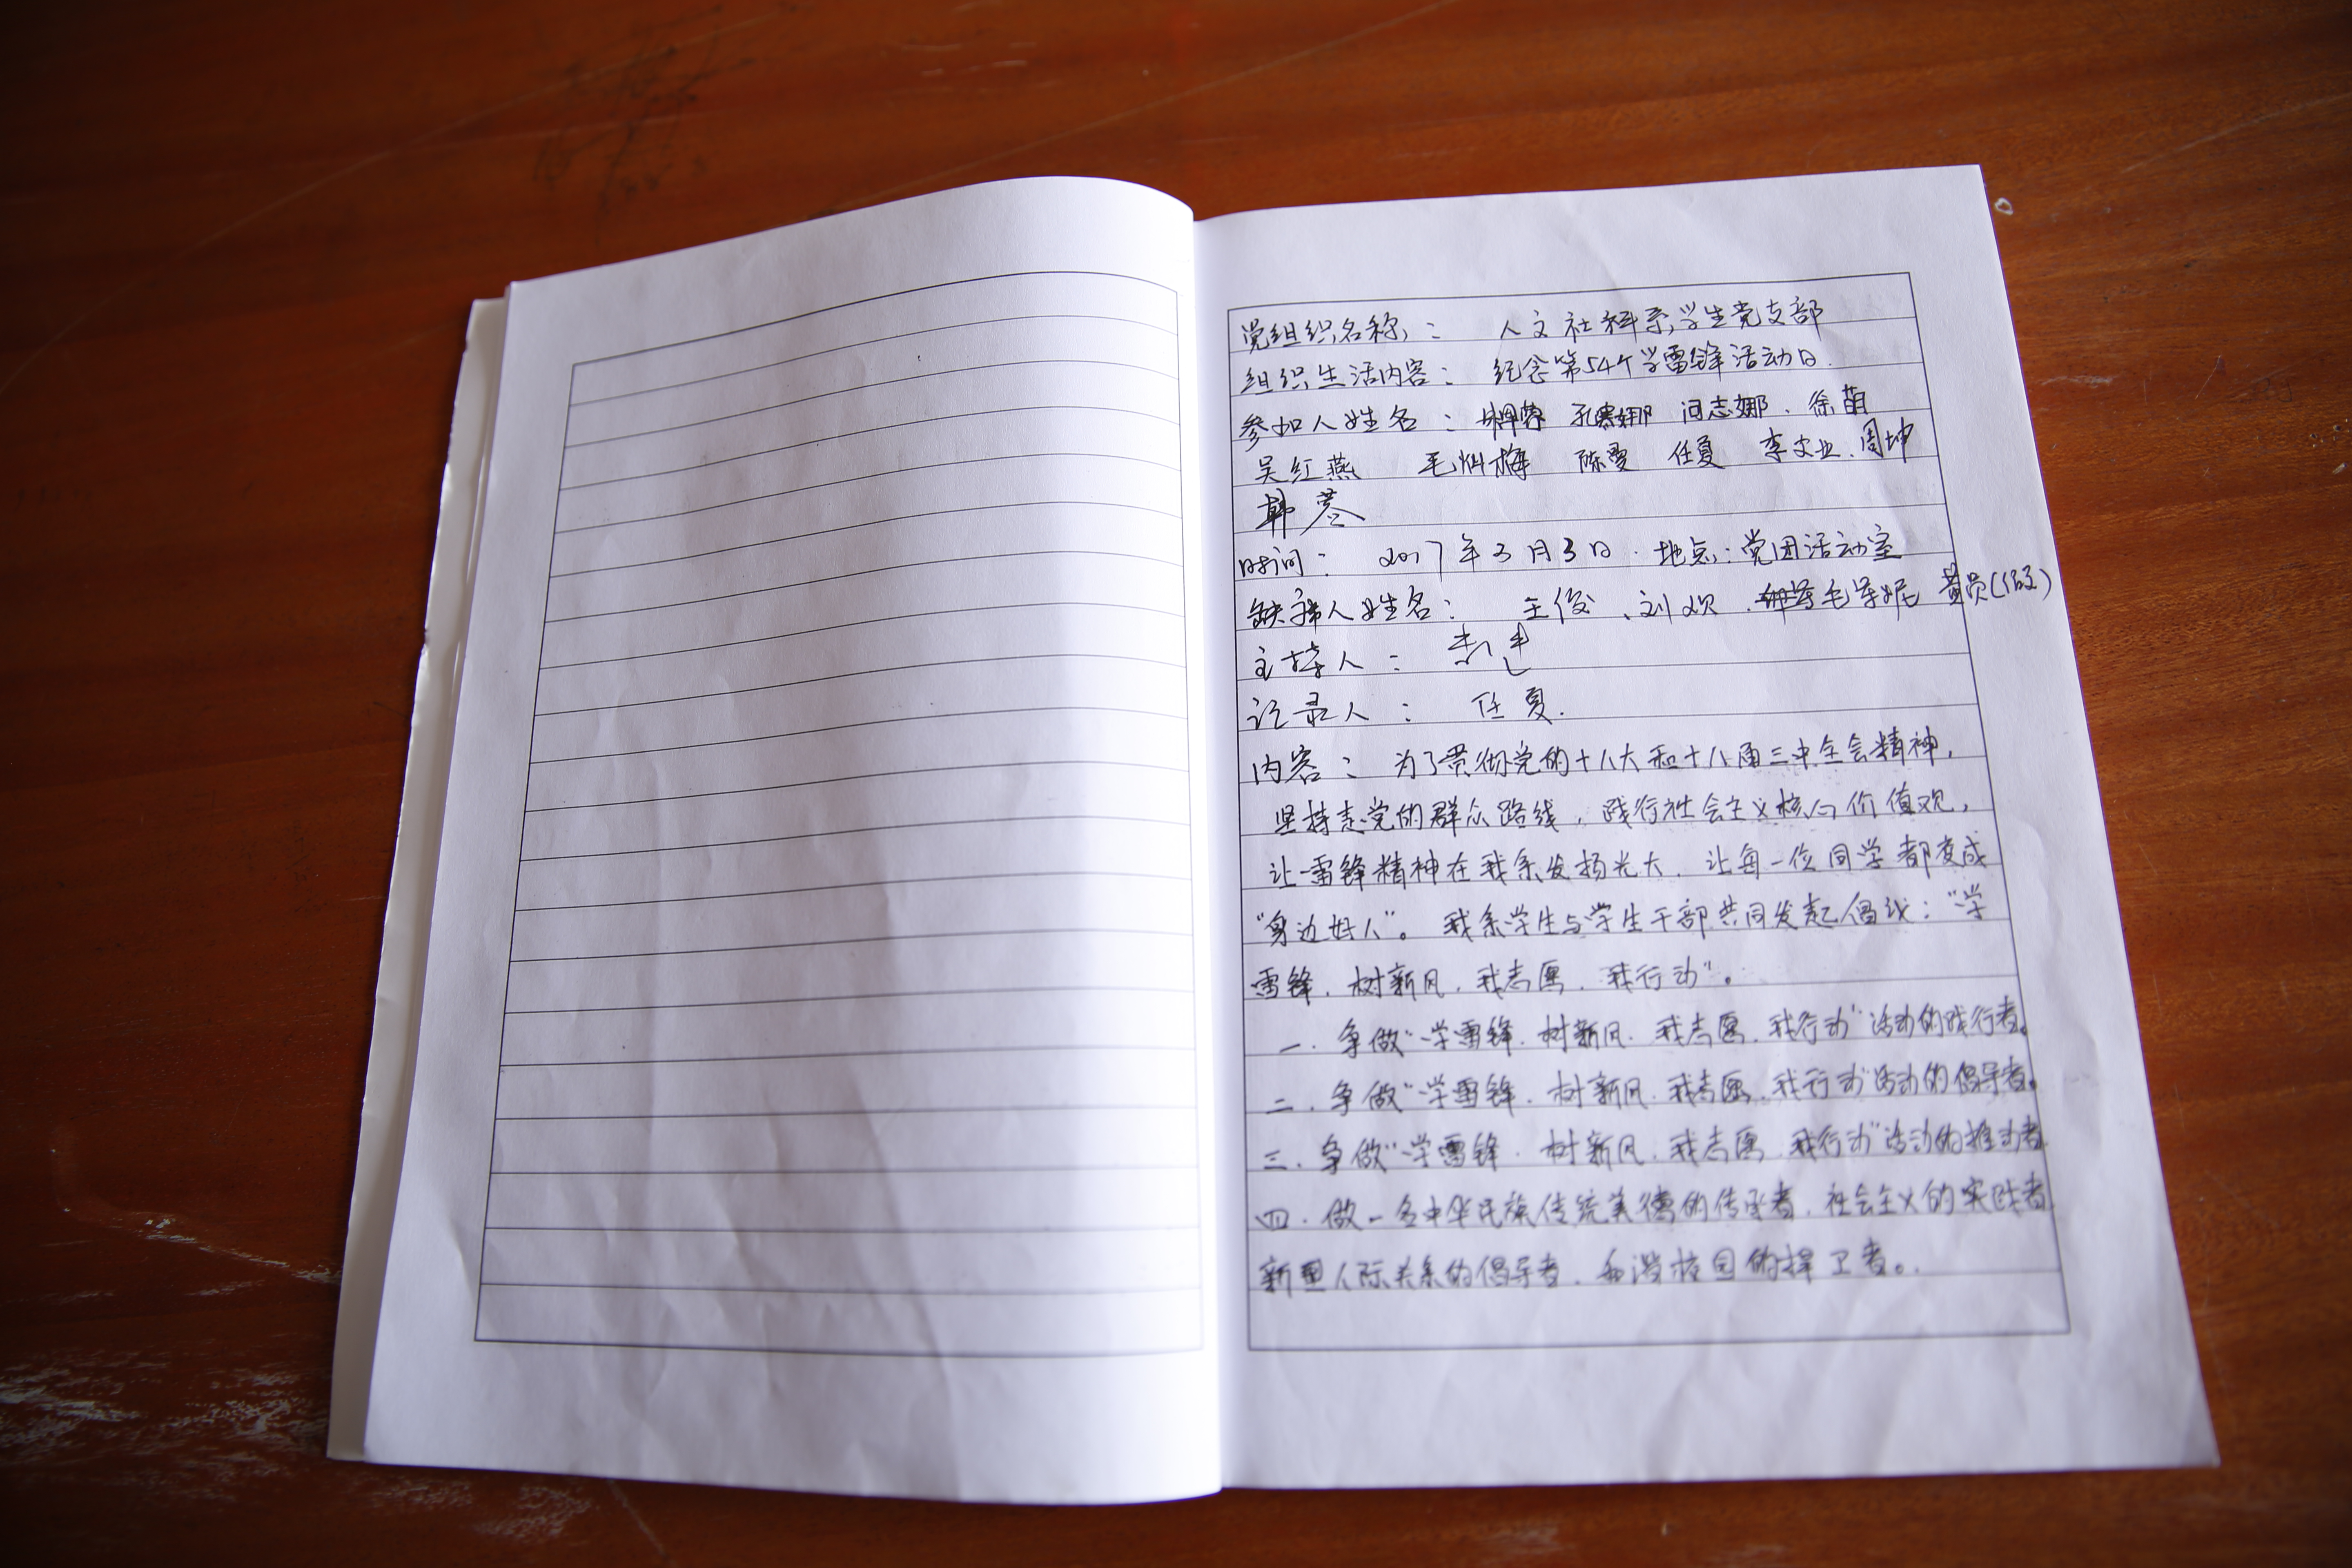 党组织名称： 人文社科系学生党支部
组织生活内容： 纪念第54个学雷锋活动日.
参加人姓名： 娜 徐萌
吴红燕 毛 梅 陈雪 任夏 李文业.周坤
韩
时间： 2017年3月3日. 地点：党团活动室
缺席人姓名： 王俊、刘欢. 毛 妮 黄炅(假)
主持人：
记录人： 任夏.
内容： 为了贯彻党的十八大和十八届三中全会精神，
坚持走党的群众路线，践行社会主义核心价值观，
让雷锋精神在我系发扬光大. 让每一位同学都变成
“身边好人”。 我系学生与学生干部共同发起倡议：“学
雷锋. 树新风. 我志愿. 我行动”。
一. 争做“学雷锋. 树新风. 我志愿. 我行动”活动的践行者。
二. 争做“学雷锋. 树新风. 我志愿. 我行动”活动的倡导者。
三. 争做“学雷锋. 树新风. 我志愿. 我行动”活动的推动者
四. 做一名中华民族传统美德的传承者. 社会主义的实践者
新型人际关系的倡导者. 和谐校园的捍卫者。.